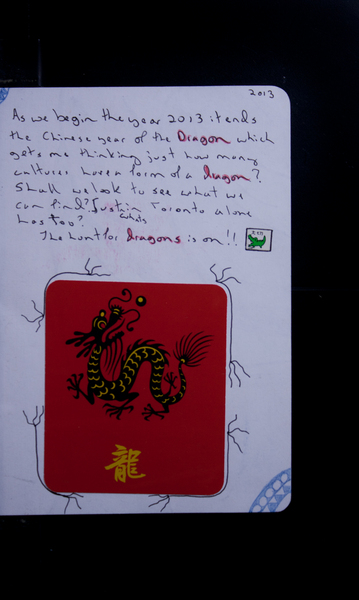 2013
As we begin the year 2013 it ends
the Chinese year of the Dragon which
gets me thinking just how many
cultures have a form of a dragon?
Shall we look to see what we
can find? Just in Toronto alone
has too? whats
The hunt for dragons is on!!
龍